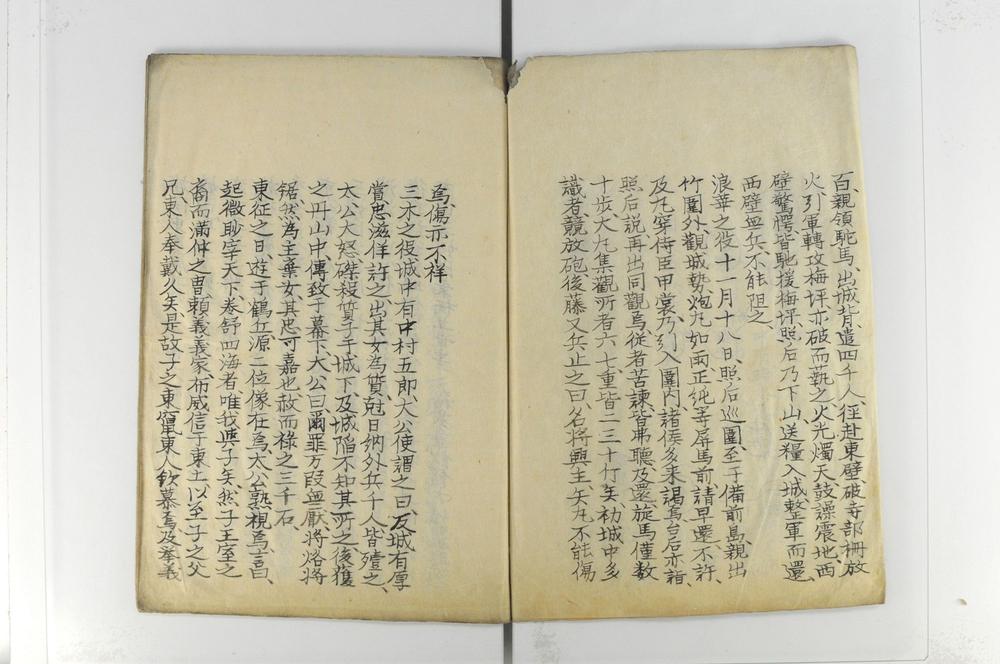 百、親領駝馬、出城背、遣四千人、径赴東壁、破寺部柵、放
火、引軍轉攻梅坪、亦破而爇之、火光燭天、鼓譟震地、西
壁驚愕、皆馳援梅坪、照后乃下山、送糧入城、整軍而還、
西壁無兵、不能阻之、
浪華之役、十一月十八日、照后巡圍、至于備前島、親出
竹圍外、觀城勢、炮丸如雨、正純等屏馬前、請早還、不許、
及丸穿侍臣甲裳、乃引入圍内、諸侯多来謁、高台后亦詣、
照后説、再出同觀焉、従者苦諫、皆弗聴、及還、旋馬僅数
十歩、大丸集觀所者六七重、皆二三十斤矣、初城中多
識者、競放砲、後藤又兵止之曰、名将興主、矢丸不能傷、
焉、傷亦不祥
三木之役、城中有中村五郎、大公使謂之曰、反城有厚
賞、忠滋佯許之、出其女為質、尅日納外兵千人、皆殪之、
太公大怒、磔殺質子于城下、及城陥、不知其所之、後獲
之丹山中、傳致于幕下、大公曰、爾罪万段無厭、将烙将
鋸、然為主棄女、其忠可嘉也、赦而禄之三千石
東征之日、遊于鶴丘、源二位像在焉、太公熟視焉、言曰、
起微眇宰天下、巻舒四海者、唯我與子矣、然子王室之
裔、而満仲之曹、頼義義家、布威信于東土、以至子之父
兄、東人奉戴久矣、是故子之東竄、東人欽慕焉、及挙義